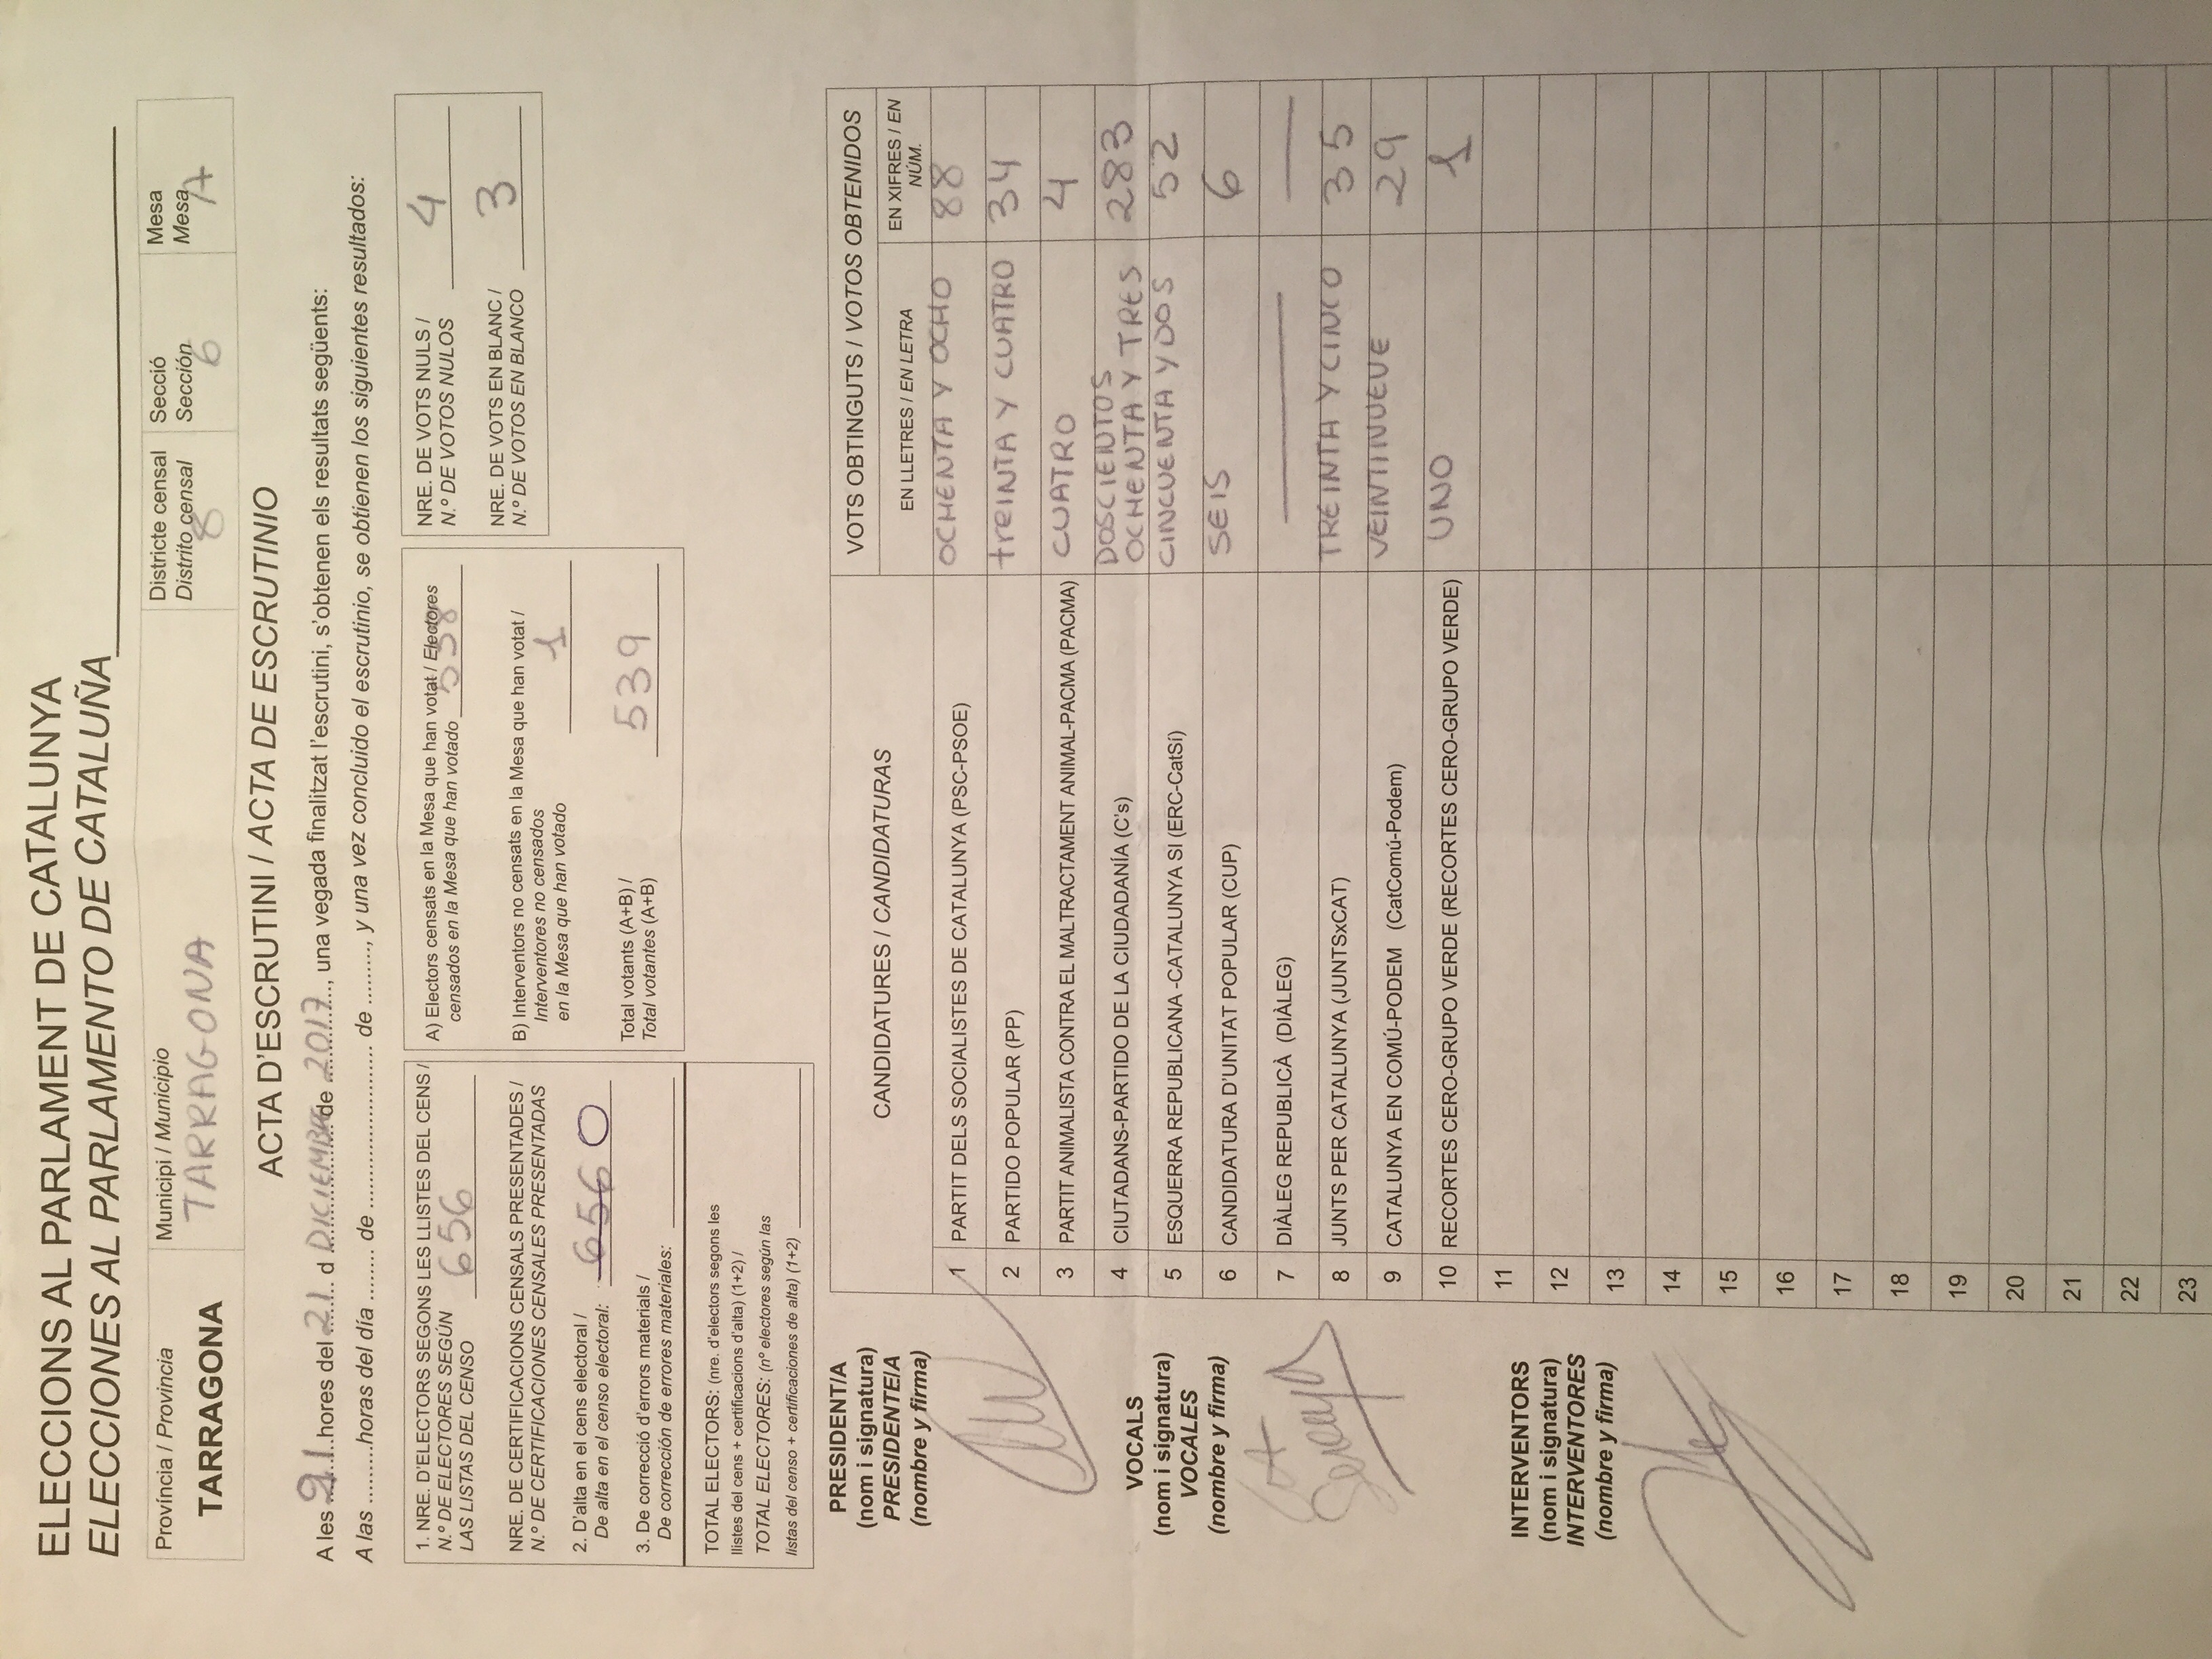 ELECCIONS AL PARLAMENT DE CATALUNYA
ELECCIONES AL PARLAMENTO DE CATALUÑA
Província / Provincia
TARRAGONA
Municipi / Municipio
TARRAGONA
Districte censal
Distrito censal
8
Secció
Sección
6
Mesa
Mesa
A
ACTA D'ESCRUTINI / ACTA DE ESCRUTINIO
A les 21 hores del 21 d DICIEMBRE de 2017, una vegada finalitzat l'escrutini, s'obtenen els resultats següents:
A las .........horas del día ........ de ........................... de ........., y una vez concluido el escrutinio, se obtienen los siguientes resultados:
1. NRE. D'ELECTORS SEGONS LES LLISTES DEL CENS /
N.º DE ELECTORES SEGÚN
LAS LISTAS DEL CENSO 656
NRE. DE CERTIFICACIONS CENSALS PRESENTADES /
N.º DE CERTIFICACIONES CENSALES PRESENTADAS
2. D'alta en el cens electoral /
De alta en el censo electoral: 656 0
3. De correcció d'errors materials /
De corrección de errores materiales:
TOTAL ELECTORS: (nre. d'electors segons les
llistes del cens + certificacions d'alta) (1+2) /
TOTAL ELECTORES: (nº electores según las
listas del censo + certificaciones de alta) (1+2)
A) Electors censats en la Mesa que han votat / Electores
censados en la Mesa que han votado 538
B) Interventors no censats en la Mesa que han votat /
Interventores no censados
en la Mesa que han votado 1
Total votants (A+B) /
Total votantes (A+B) 539
NRE. DE VOTS NULS /
N.º DE VOTOS NULOS 4
NRE. DE VOTS EN BLANC /
N.º DE VOTOS EN BLANCO 3
PRESIDENT/A
(nom i signatura)
PRESIDENTE/A
(nombre y firma)
VOCALS
(nom i signatura)
VOCALES
(nombre y firma)
INTERVENTORS
(nom i signatura)
INTERVENTORES
(nombre y firma)
CANDIDATURES / CANDIDATURAS
VOTS OBTINGUTS / VOTOS OBTENIDOS
EN LLETRES / EN LETRA
EN XIFRES / EN
NÚM.
1 PARTIT DELS SOCIALISTES DE CATALUNYA (PSC-PSOE) OCHENTA Y OCHO 88
2 PARTIDO POPULAR (PP) TREINTA Y CUATRO 34
3 PARTIT ANIMALISTA CONTRA EL MALTRACTAMENT ANIMAL-PACMA (PACMA) CUATRO 4
4 CIUTADANS-PARTIDO DE LA CIUDADANÍA (C's) DOSCIENTOS
OCHENTA Y TRES 283
5 ESQUERRA REPUBLICANA -CATALUNYA SI (ERC-CatSí) CINCUENTA Y DOS 52
6 CANDIDATURA D'UNITAT POPULAR (CUP) SEIS 6
7 DIÀLEG REPUBLICÀ (DIÀLEG)
8 JUNTS PER CATALUNYA (JUNTSxCAT) TREINTA Y CINCO 35
9 CATALUNYA EN COMÚ-PODEM (CatComú-Podem) VEINTINUEVE 29
10 RECORTES CERO-GRUPO VERDE (RECORTES CERO-GRUPO VERDE) UNO 1
11
12
13
14
15
16
17
18
19
20
21
22
23